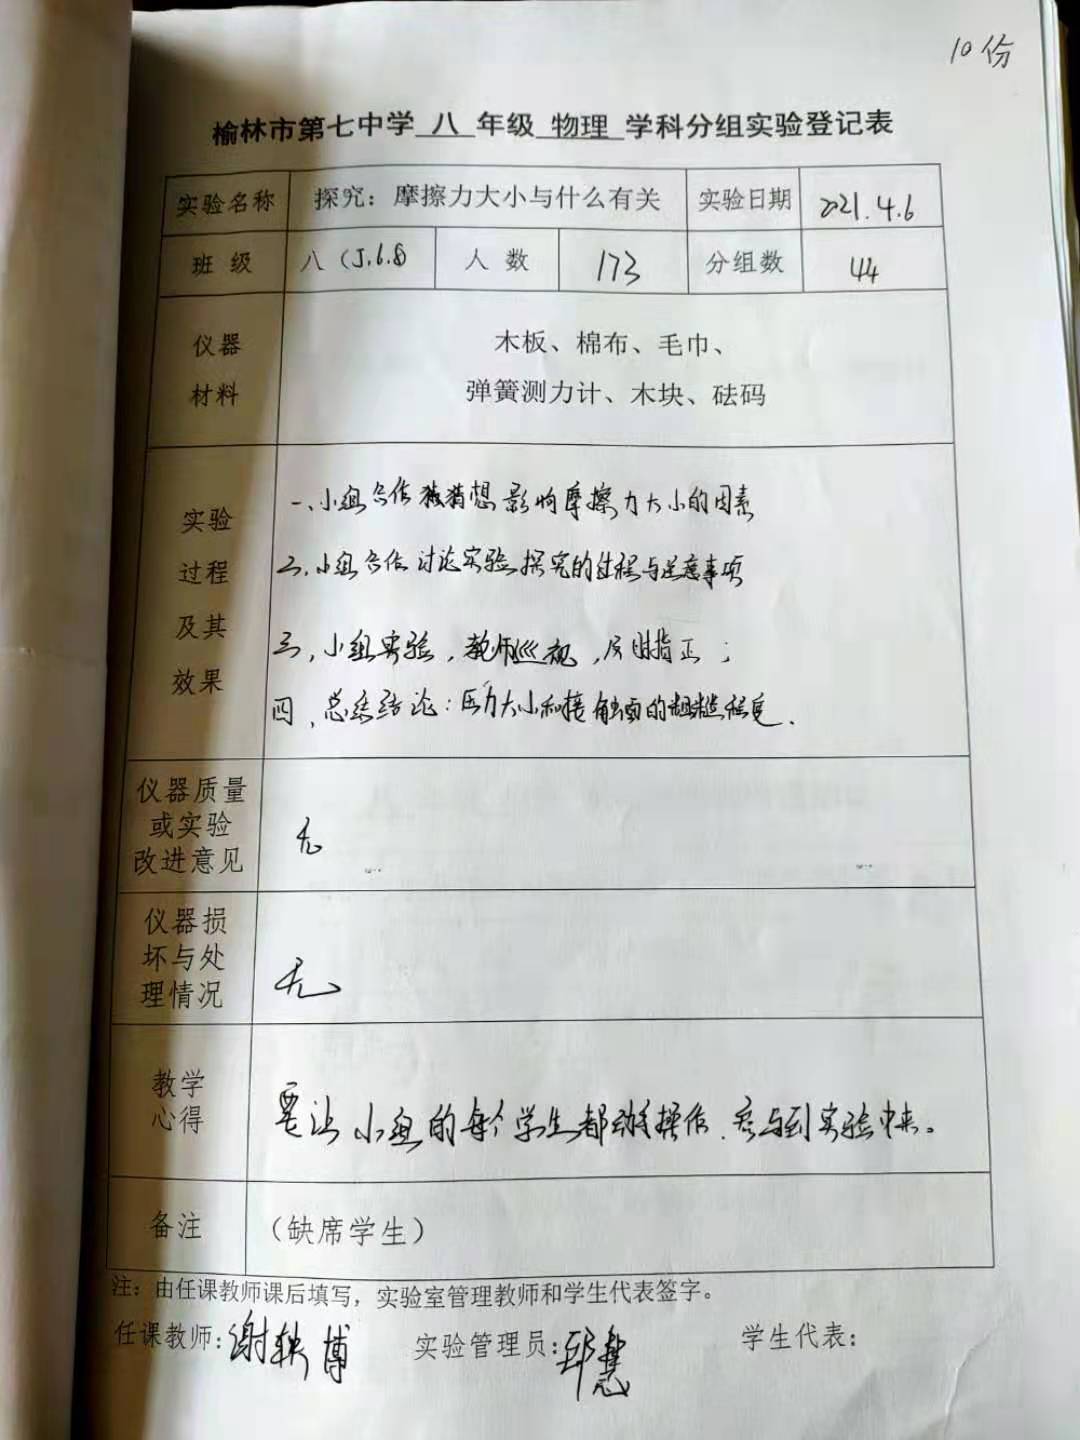 10份
榆林市第七中学 八 年级 物理 学科分组实验登记表
实验名称 探究：摩擦力大小与什么有关 实验日期 2021.4.6
班 级 八（5.6.8） 人 数 173 分组数 44
仪器
材料
木板、棉布、毛巾、
弹簧测力计、木块、砝码
实验
过程
及其
效果
一、小组合作猜想影响摩擦力大小的因素
二、小组合作讨论实验探究的过程与注意事项
三、小组实验，教师巡视，及时指正；
四、总结结论：压力大小和接触面的粗糙程度.
仪器质量
或实验
改进意见
无
仪器损
坏与处
理情况
无
教学
心得
要让小组的每个学生都动手操作，参与到实验中来。
备注 （缺席学生）
注：由任课教师课后填写，实验室管理教师和学生代表签字。
任课教师：谢轶博 实验管理员：邱慧 学生代表：